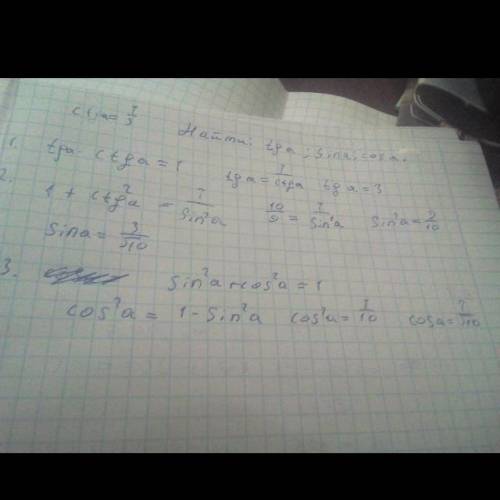 ctga = 1/3 Найти: tga; sina; cosa.
1. tga · ctga = 1 tga = 1/ctga tga = 3
2. 1 + ctg²a = 1/sin²a 10/9 = 1/sin²a sin²a = 9/10
sina = 3/√10
3. sin²a + cos²a = 1
cos²a = 1 - sin²a cos²a = 1/10 cosa = 1/√10